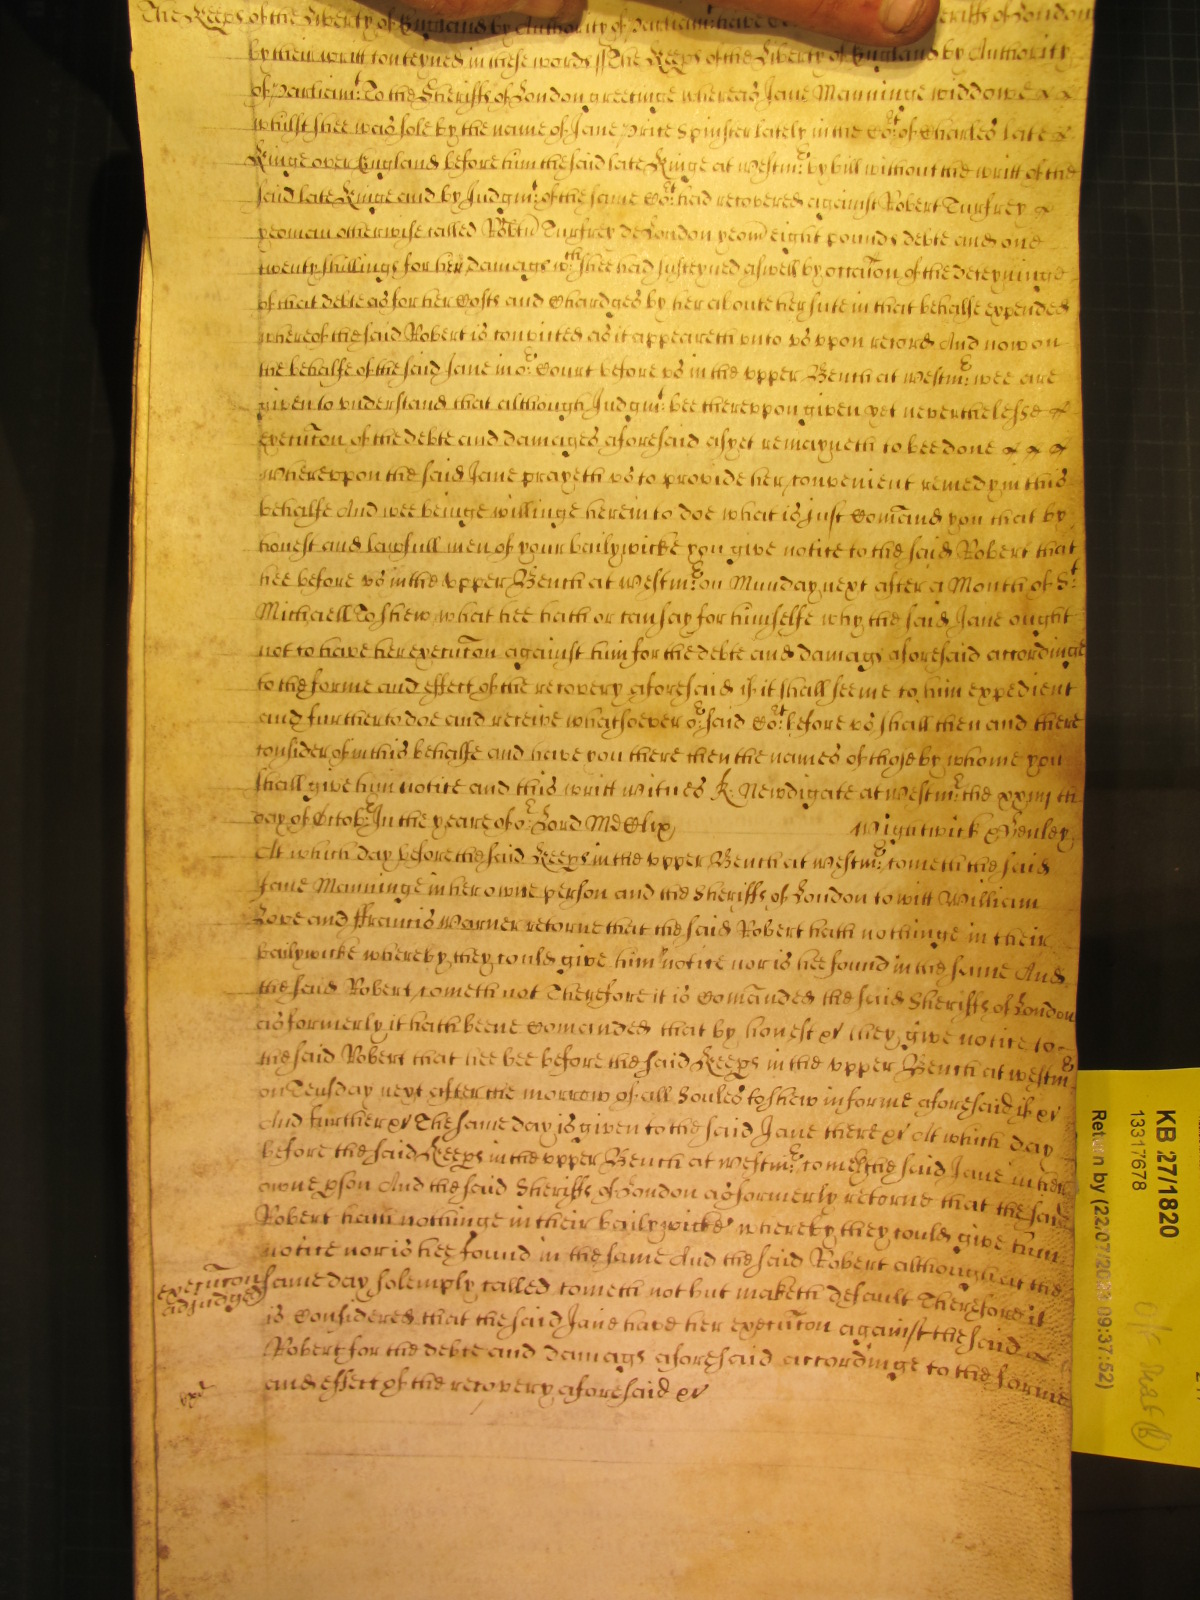 The Keeps of the Liberty of England by Authority of Parliam: have eriffs of London
by their writt conteyned in these words ss The Keeps of the Liberty of England by Authority
of Parliam:t To the Sheriffs of London greetinge whereas Jane Manninge widdowe
whilst shee was sole by the name of Jane Price Spinster lately in the Co:rt of Charles late
Kinge over England before him the said late Kinge at Westm:r by bill without the writt of the
said late Kinge and by Judgm:t of the same Co:rt had recovered against Robert Turfrey
yeoman otherwise called Robtu Turfrey de London yeom eight pounds debte and one
twenty shillings for her damags w:ch shee had susteyned aswell by occacon of the deteyninge
of that debte as for her Costs and Chardges by her aboute her sute in that behalfe expended
whereof the said Robert is convicted as it appeareth vnto vs vpon record And now on
the behalfe of the said Jane in o:r Court before vs in the vpper Bench at Westm:r wee are
given to vnderstand that although Judgm:t bee therevpon given yet neverthelesse
execucon of the debte and damages aforesaid as yet remayneth to bee done
Wherevpon the said Jane prayeth vs to provide her convenient remedy in this
behalfe And wee beinge willinge herein to doe what is just Comand you that by
honest and lawfull men of your bailywicke you give notice to the said Robert that
hee before vs in the vpper Bench at Westm:r on Munday next after a Month of S:t
Michaell To shew what hee hath or can say for himselfe why the said Jane ought
not to have her execucon against him for the debte and damags aforesaid accordinge
to the forme and effect of the recovery aforesaid if it shall seeme to him expedient
and further to doe and receive whatsoever o:r said Co:rt before vs shall then and there
consider of in this behalfe and have you there then the names of those by whome you
shall give him notice and this writt Witnes R: Newdigate at Westm:r the xxiiij th
day of Octob:r In the yeare of o:r Lord MDClix Wightwick & Henley
At which day before the said Keeps in the vpper Bench at Westm:r cometh the said
Jane Manninge in her owne person and the Sheriffs of London to witt William
Love and ffrancis Warner retorne that the said Robert hath nothinge in their
bailywicke whereby they could give him notice nor is hee found in the same And
the said Robert cometh not Therefore it is Comanded the said Sheriffs of London
as formerly it hath beene Comanded that by honest &c they give notice to
the said Robert that hee bee before the said Keeps in the vpper Bench at Westm:r
on Teusday next after the morrow of all Soules to shew in forme aforesaid if &c
And further &c The same day is given to the said Jane there &c At which day
before the said Keeps in the vpper Bench at Westm:r cometh the said Jane in her
owne pson And the said Sheriffs of London as formerly retorne that the said
Robert hath nothinge in their bailywicke whereby they could give him
notice nor is hee found in the same And the said Robert although at the
execucon adjudged
same day solemply called cometh not but maketh default Therefore it
is Considered that the said Jane have her execucon against the said
Robert for the debte and damags aforesaid accordinge to the forme
and effect of the recovery aforesaid &c
KB 27/1820
13317678
Return by (22/07/20 09:37:52)